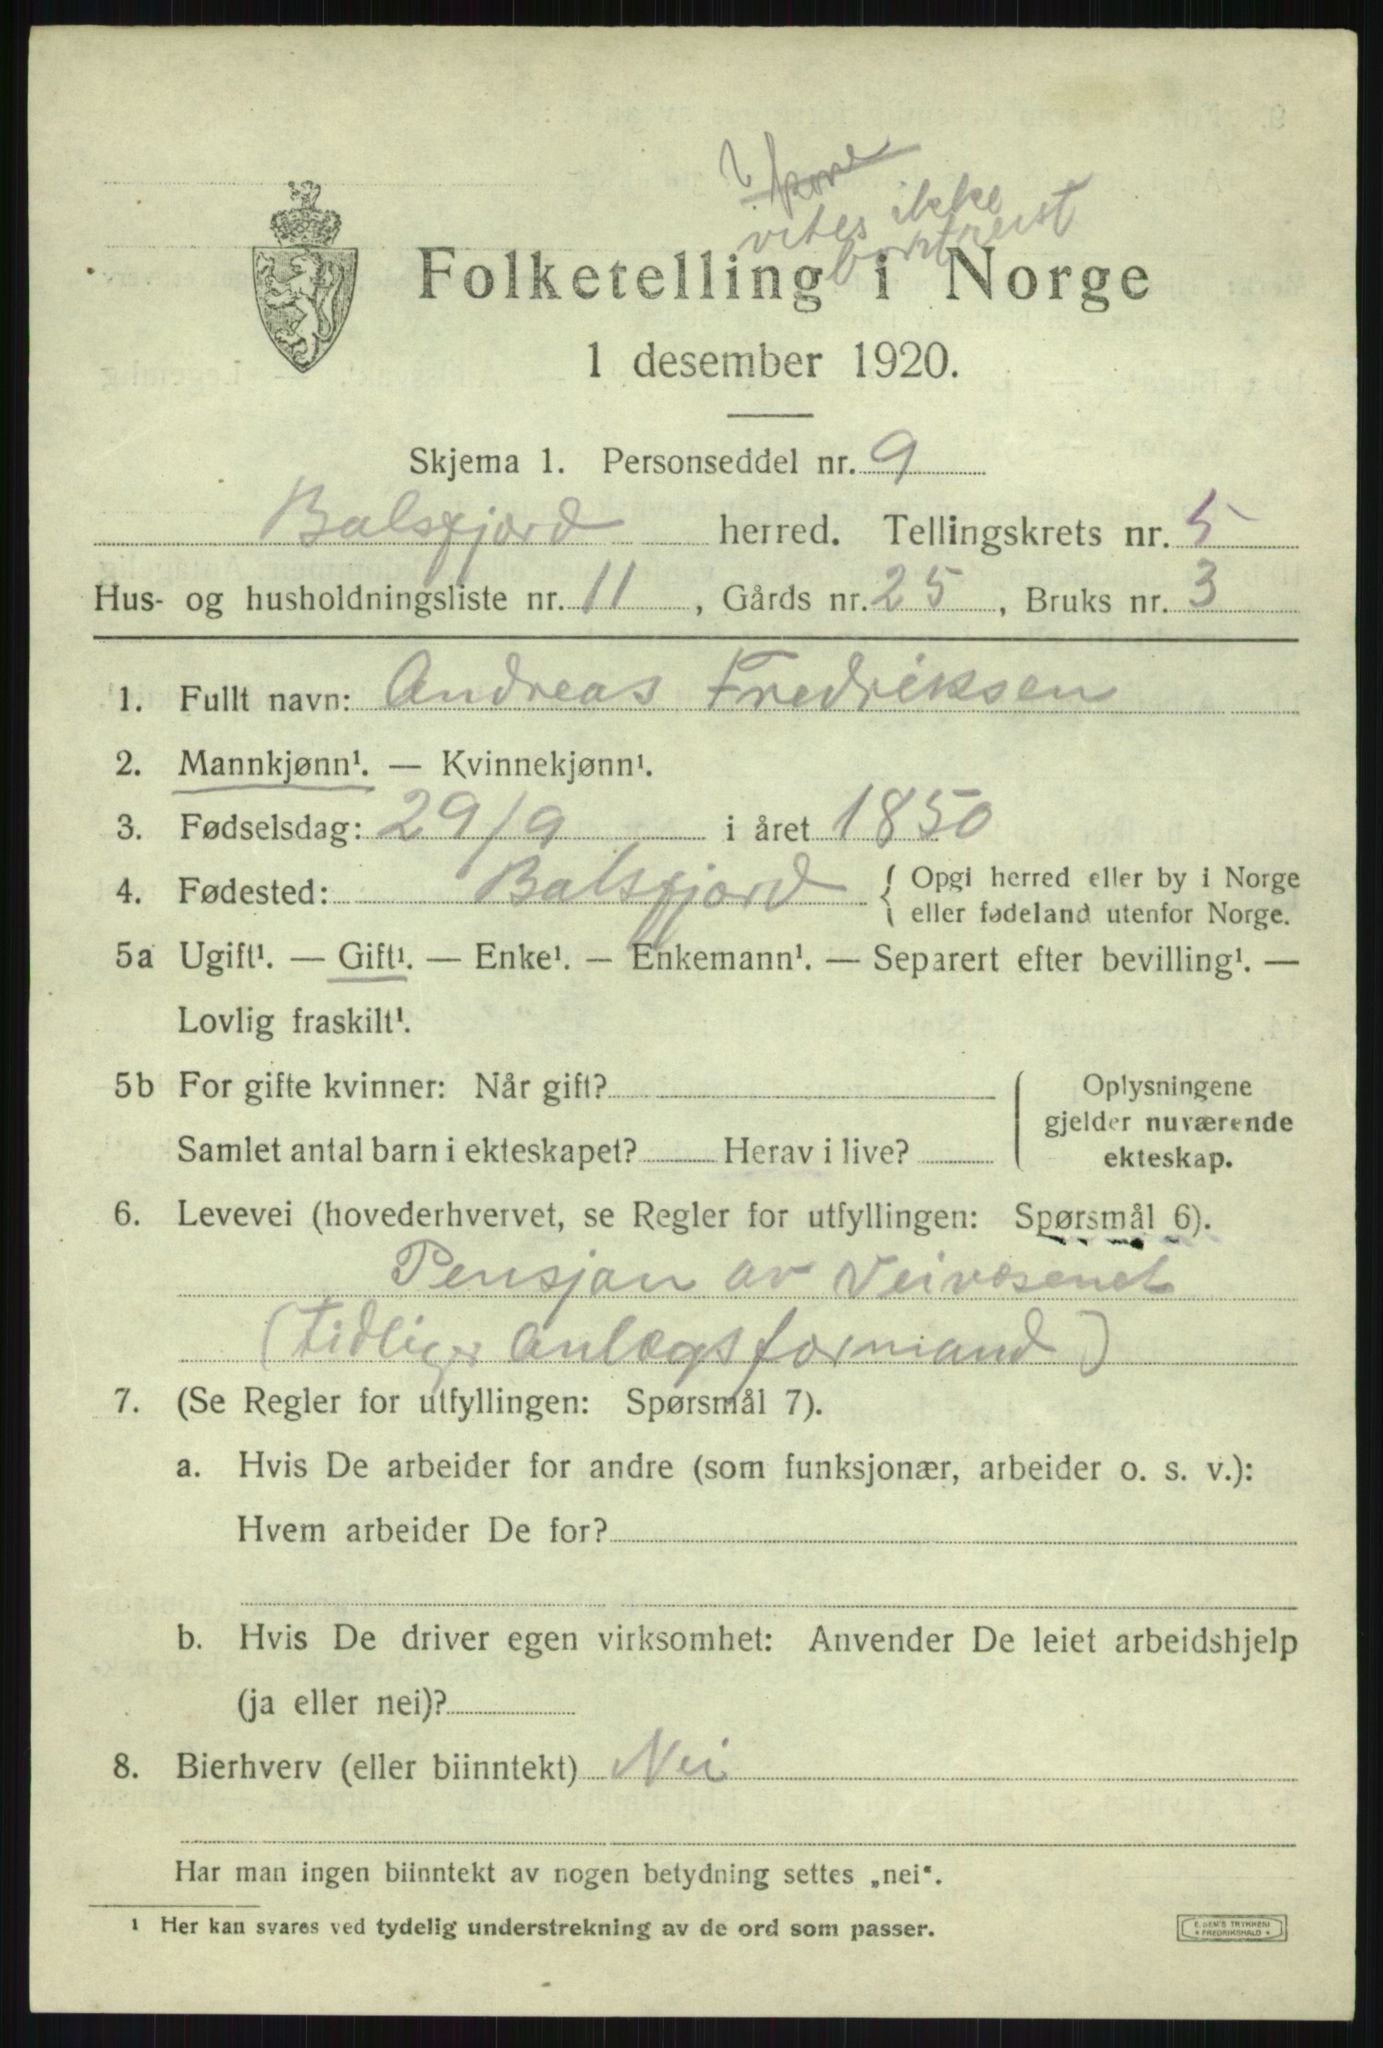 vites ikke
bortreist
Folketelling i Norge
1 desember 1920.
Skjema 1. Personseddel nr. 9
Balsfjord herred. Tellingskrets nr. 5
Hus- og husholdningsliste nr. 11, Gårds nr. 25, Bruks nr. 3
1. Fullt navn: Andreas Fredriksen
2. Mannkjønn¹. — Kvinnekjønn¹.
3. Fødselsdag: 29/9 i året 1850
4. Fødested: Balsfjord { Opgi herred eller by i Norge
eller fødeland utenfor Norge.
5a Ugift¹. — Gift¹. — Enke¹. — Enkemann¹. — Separert efter bevilling¹. —
Lovlig fraskilt¹.
5b For gifte kvinner: Når gift?
Samlet antal barn i ekteskapet? Herav i live?
Oplysningene
gjelder nuværende
ekteskap.
6. Levevei (hovederhvervet, se Regler for utfyllingen: Spørsmål 6).
Pensjon av Veivæsenet
(tidliger Anlægsformand)
7. (Se Regler for utfyllingen: Spørsmål 7).
a. Hvis De arbeider for andre (som funksjonær, arbeider o. s. v.):
Hvem arbeider De for?
b. Hvis De driver egen virksomhet: Anvender De leiet arbeidshjelp
(ja eller nei)?
8. Bierhverv (eller biinntekt) Nei
Har man ingen biinntekt av nogen betydning settes „nei“.
¹ Her kan svares ved tydelig understrekning av de ord som passer.
E. SEM'S TRYKKERI
* FREDRIKSHALD *